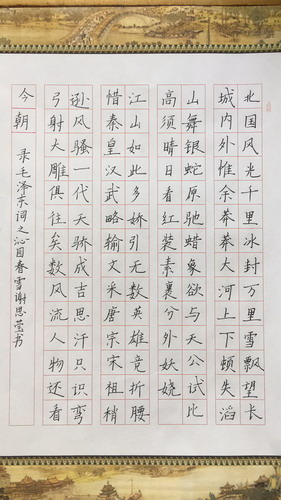 北国风光千里冰封万里雪飘望卡
城内外惟余莽莽大河上下顿失滔
山舞银蛇原驰蜡象欲与天公试比
高须晴日看红装素裹分外妖娆
江山如此多娇引无数英雄竞折腰
惜秦皇汉武略输文采唐宗宋祖稍
逊风骚一代天骄成吉思汗只识弯
弓射大雕俱往矣数风流人物还看
今朝
录毛泽东词之沁园春雪谢思莹书